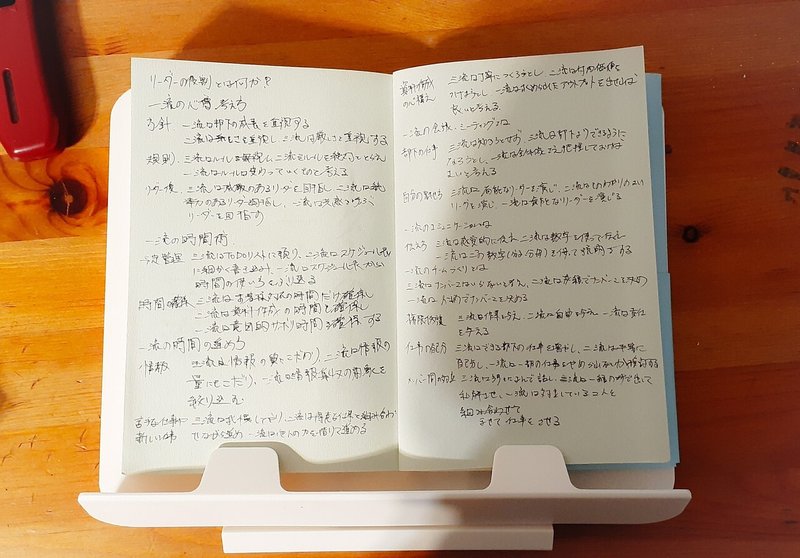 リーダーの原則とは何か?
一流の心構、考え方
方針 一流は部下の成長を重視する
二流は を重視し 三流は厳しさを重視する
規則 三流はルールを無視し、二流はルールを絶対ととらえ
一流はルールは変わっていくものと考える
リーダー像 三流は威厳のあるリーダーを目指し 二流は統
率力のあるリーダー目指し、一流は共感を呼ぶ
リーダーを目指す
一流の時間術
予定管理 三流はToDoリストに頼り、二流はスケジュール表
に細かく書き込み、一流はスケジュール表
時間の使い方をふり返る
時間の確保 三流はお客様対応の時間だけ確保し
二流は資料作成の時間も確保し
一流は意図的サボリ時間を確保する
一流の時間の進め方
情報 三流は情報の質にこだわり、二流は情報の
量にもこだわり、一流は情報
絞り込む
苦手な仕事に 三流は 二流は得意な仕事と組み合わ
新しい仕事 せながら進め 一流は他人の力を借りて進める
資料作成 三流は丁寧につくろうとし 二流は付加価値を
の心構え つけようとし 一流は求められたアウトプットを出せれば
良いと考える
一流の会議、ミーティングとは
部下の仕事 三流は知ろうとせず、二流は部下よりできるように
なろうとし、一流は全体像さえ把握しておけば
よいと考える
自分の見せ方 三流は有能なリーダーを演じ、二流はものわかりのよい
リーダーを演じ、一流は なリーダーを演じる
一流のコミュニケーションとは
伝え方 三流は感覚的に伝え、二流は数字を使って伝え
一流は二つの数字 を使って説明する
一流のチームづくりとは
三流はナンバー2はいらないとし、二流は成績でナンバー2を決め
一流は でナンバー2を決める
権限 三流は作業を与え、二流は自由を与え、一流は責任
を与える
仕事の配分 三流はできる部下の仕事を増やし、二流は平等に
配分し、一流は一部の仕事をやめられないか検討する
メンバー間の対立 三流は 話し、二流は一緒の場で話して
和解させ、一流は対立している2人を
組み合わせて
仕事をさせる